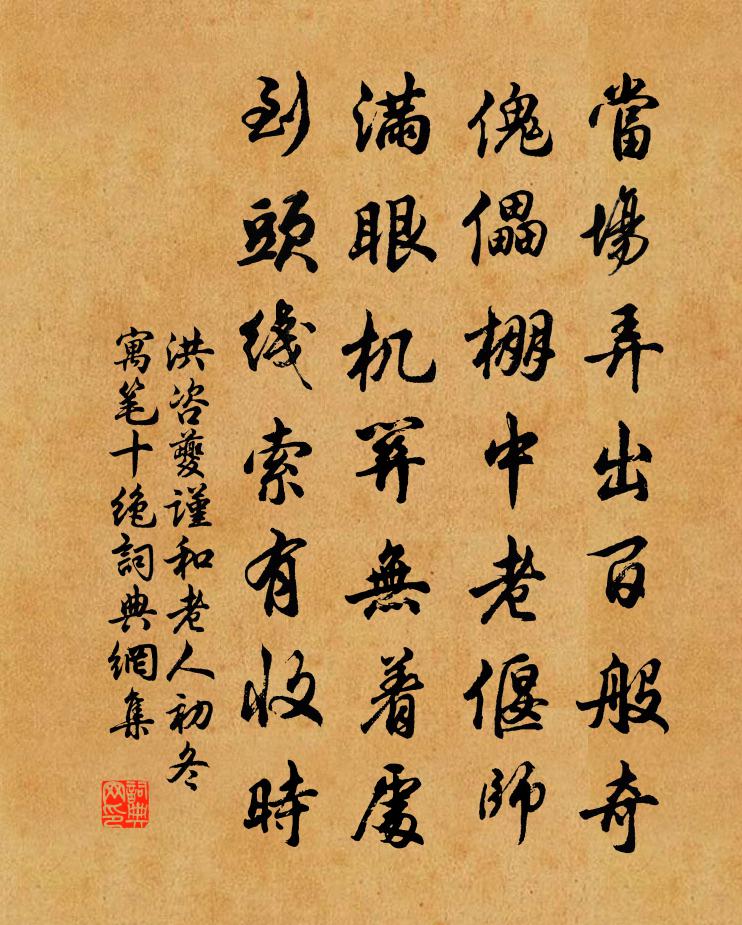 當場弄出百般奇
傀儡棚中老偃師
滿眼机關無着處
到頭线索有收時
洪咨夔謹和老人初冬
寓笔十绝詞典網集
詞典网印